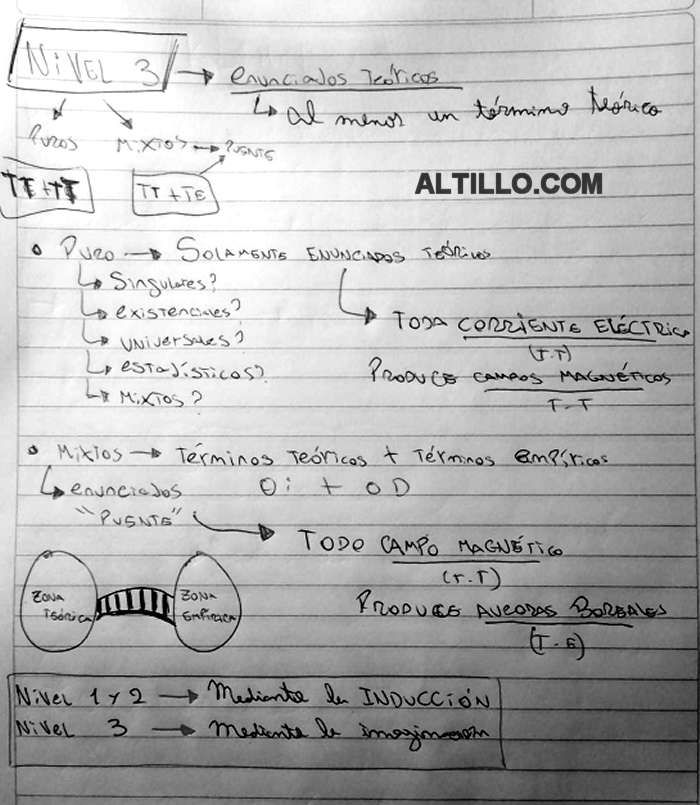 NIVEL 3 → enunciados teóricos
↳ al menos un término teórico
PUROS MIXTOS → PUENTE
TT + TT TT + TE
ALTILLO.COM
• PURO → SOLAMENTE ENUNCIADOS TEÓRICOS
↳ Singulares?
↳ existenciales?
↳ UNIVERSALES?
↳ estadísticos?
↳ MIXTOS?
TODA CORRIENTE ELÉCTRICA
(T.T)
PRODUCE CAMPOS MAGNÉTICOS
T-T
• MIXTOS → Términos Teóricos + Términos empíricos
↳ enunciados Oi + OD
"PUENTE"
TODO CAMPO MAGNÉTICO
(T.T)
PRODUCE AURORAS BOREALES
(T-E)
ZONA TEÓRICA
ZONA EMPÍRICA
Nivel 1 y 2 → Mediante la INDUCCIÓN
Nivel 3 → Mediante la imaginación